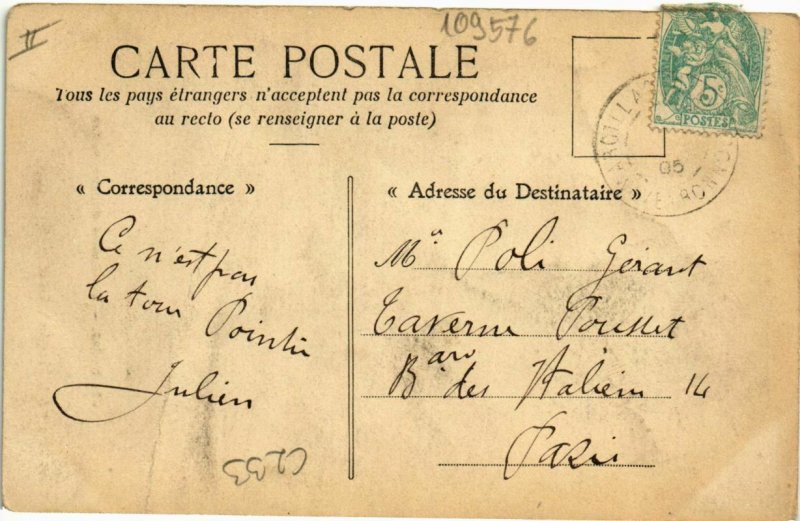 II
109576
CARTE POSTALE
Tous les pays étrangers n'acceptent pas la correspondance
au recto (se renseigner à la poste)
« Correspondance »
Ce n'est pas
la tour Pointue
Julien
C233
« Adresse du Destinataire »
5c
POSTES
05
Mr Poli Gérant
Taverne Pousset
Bard des Italiens 14
Paris